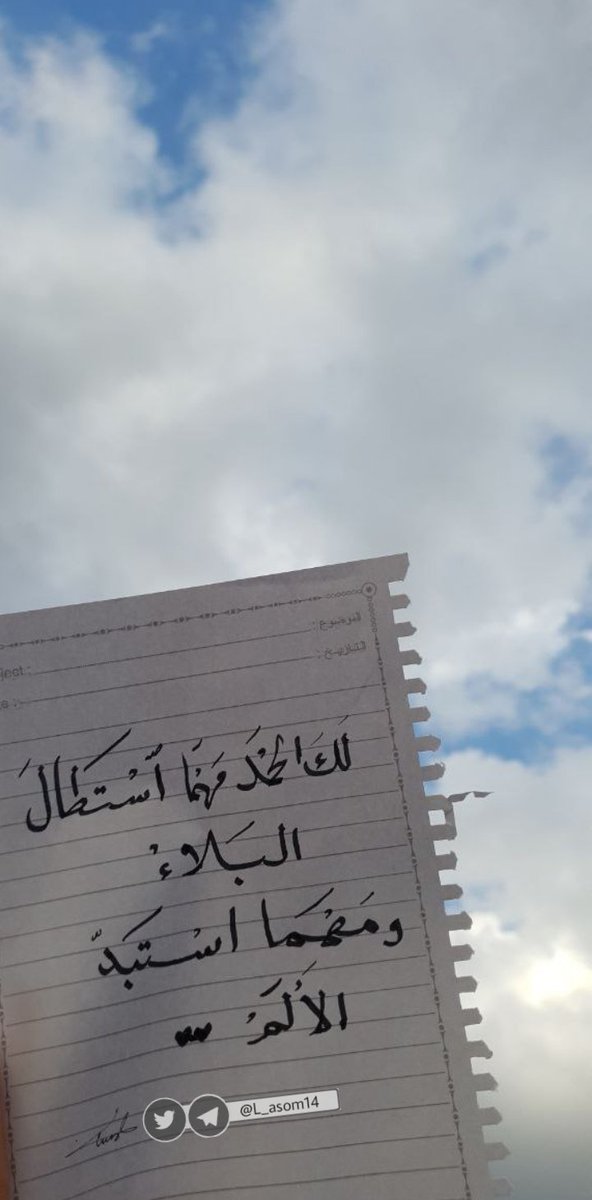 الموضوع :
ject :
التاريخ :
te :
لَكَ الحَمْدَ مَهْمَا اسْتَطَالَ
البَلاءُ
ومَهْمَا اسْتَبَدّ
الأَلَمُ
@L_asom14